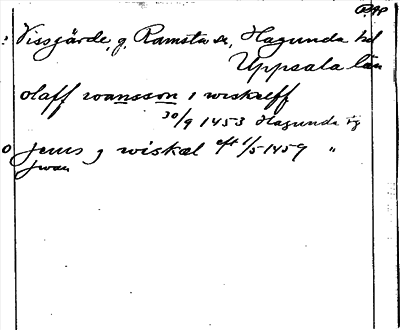 : Vissgärde, g. Ramsta sn, Hagunda hd
Uppsala län
olaff wansson i wiskælff
30/9 1453 Hagunda
o jenus j wiskæl eft 1/5 1459 "